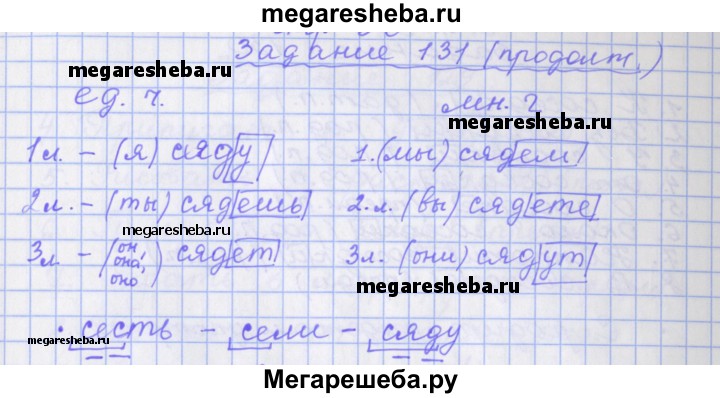 megaresheba.ru
Задание 131 (продолж.)
megaresheba.ru
ед. ч.
мн. ч
megaresheba.ru
1л. – (я) сяду
1. (мы) сядем
2л. – (ты) сядешь
2. л. (вы) сядете
megaresheba.ru
3л. – (он, она, оно) сядет
3л. (они) сядут
megaresheba.ru
· сесть – сели – сяду
megaresheba.ru
Мегарешеба.ру